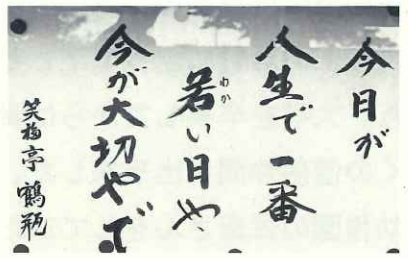 今日が
人生で一番
若い日や
今が大切やで
笑福亭鶴瓶